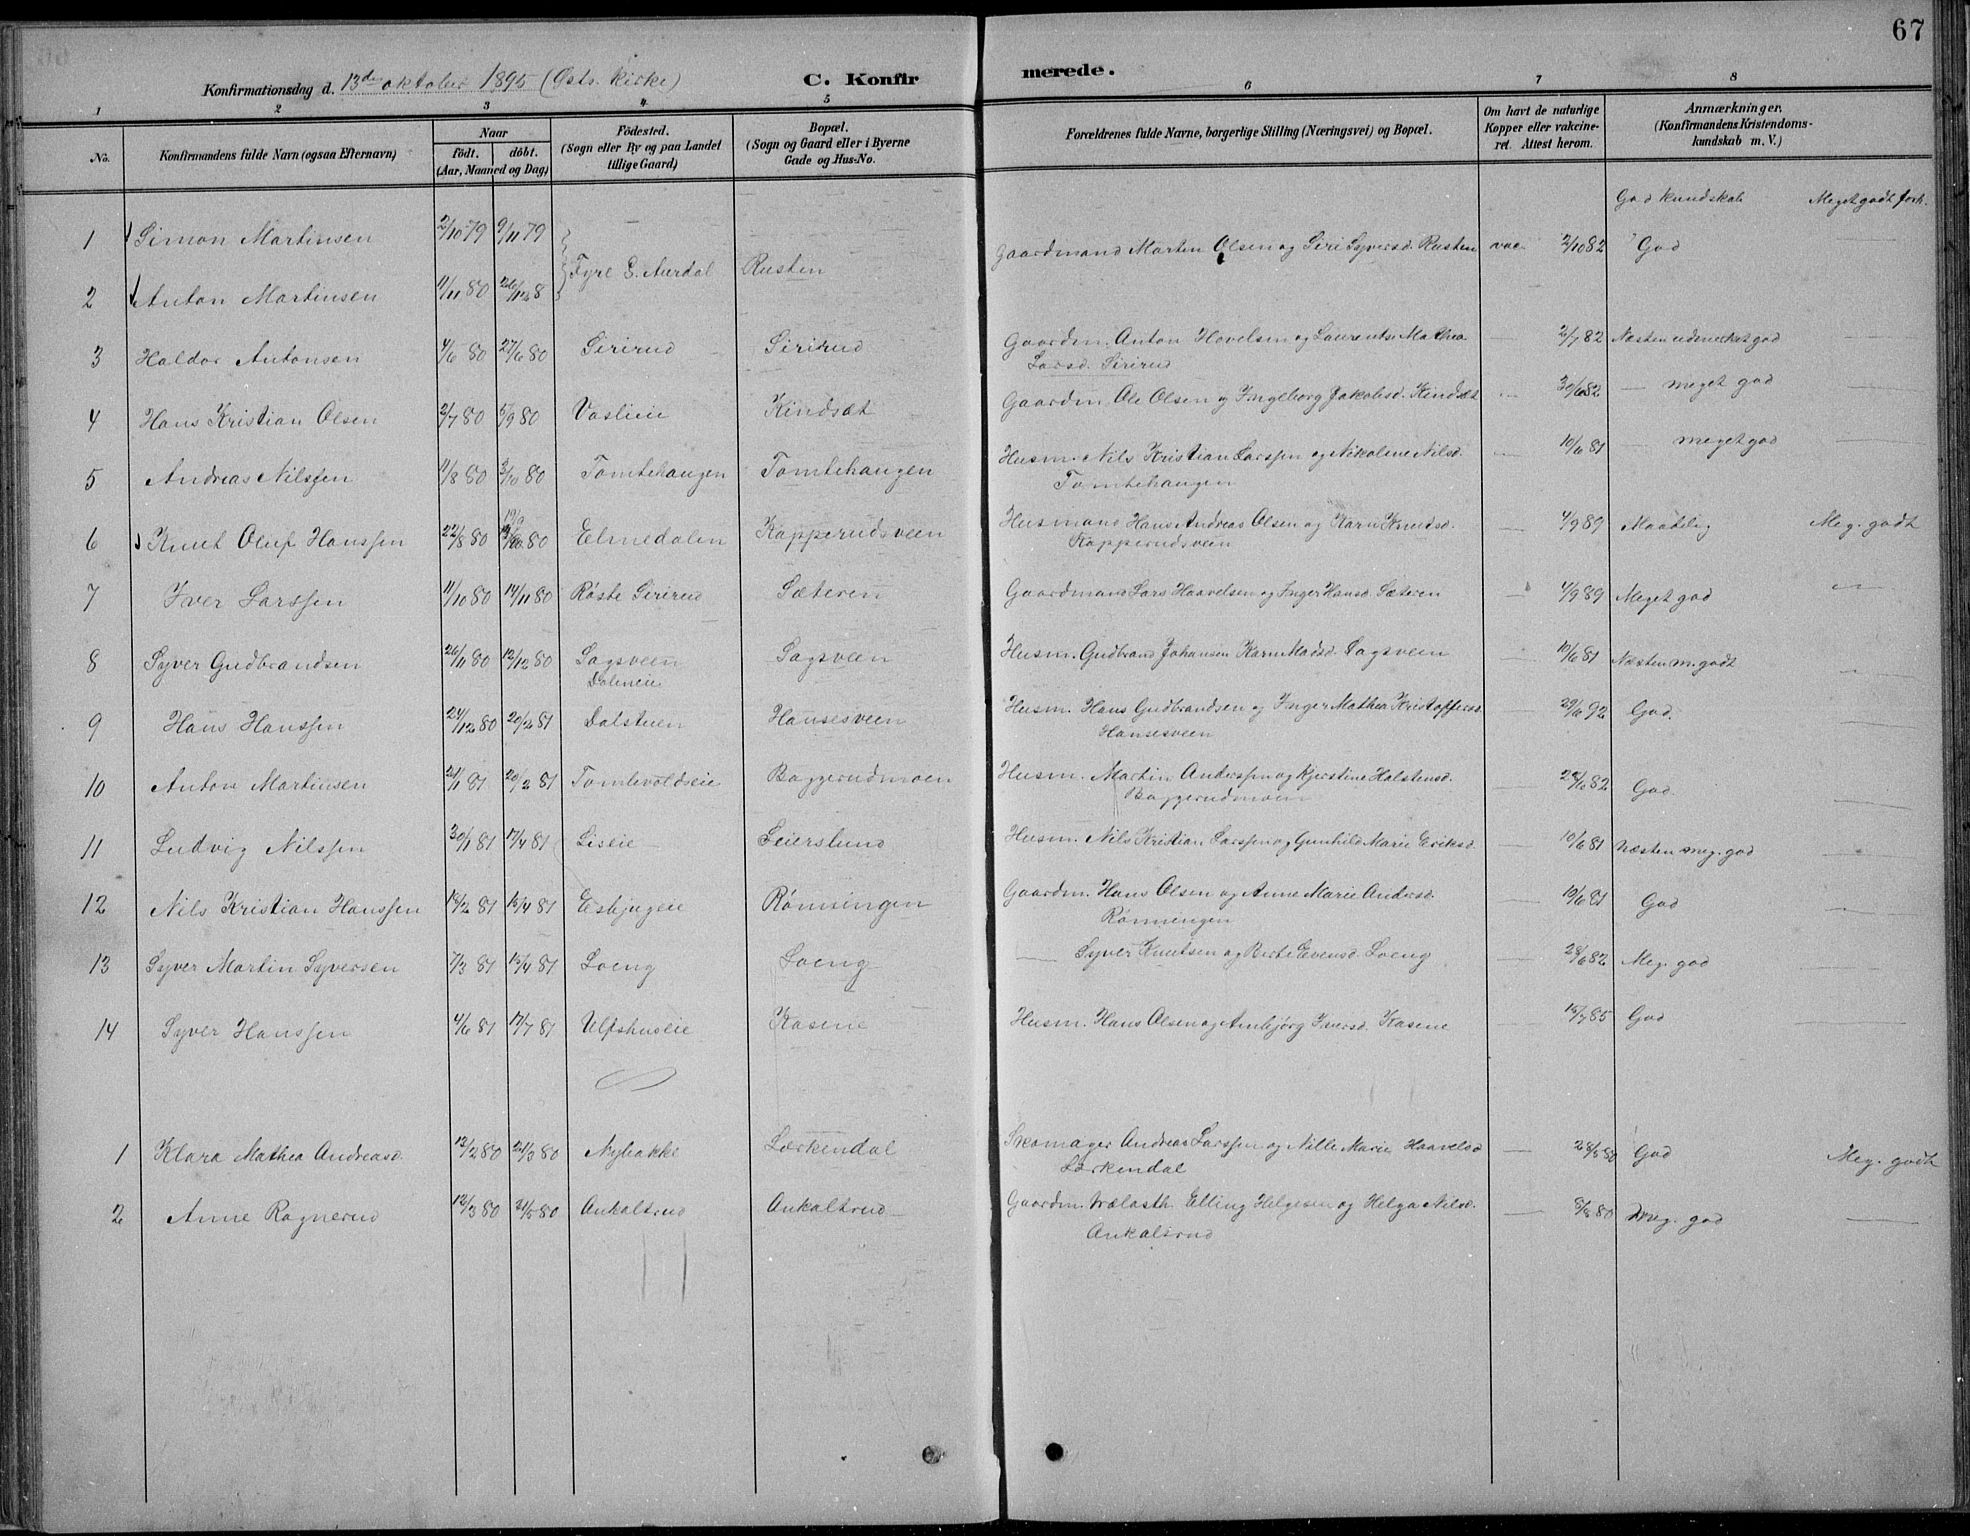 67
Konfirmationsdag d. 13de oktober 1895 (Østs. Kirke)
C. Konfirmerede.
1 2 3 4 5 6 7 8
No.
Konfirmandens fulde Navn (ogsaa Efternavn)
Naar
født. døbt.
(Aar, Maaned og Dag)
Födested.
(Sogn eller By og paa Landet
tillige Gaard)
Bopæl.
(Sogn og Gaard eller i Byerne
Gade og Hus-No.
Forældrenes fulde Navne, borgerlige Stilling (Næringsvei) og Bopæl.
Om havt de naturlige
Kopper eller vakcine-
ret. Attest herom.
Anmærkninger.
(Konfirmandens Kristendoms-
kundskab m. V.)
God kundskab Meget godt forh.
1 Simon Martinsen 2/10 79 9/11 79 Gaardmand Marten Olsen og Siri Syversd. Rusten vac 2/10 82 God
Fyrl S. Aurdal Rusten
2 Anton Martinsen 11/11 80
3 Haldor Antonsen 4/6 80 27/6 80 Sirirud Sirirud Gaardm. Anton Hovelsen og Laurentse Mathea 2/7 82 Næsten udmerket god
Larsd. Sirirud
4 Hans Kristian Olsen 2/7 80 5/9 80 Vaslieie Kindsæt Gaardm. Ole Olsen og Ingeborg Jakobsd. Kindsæt 30/6 82 — meget god
5 Andreas Nilssen 11/8 80 3/10 80 Tomtehaugen Tomtehaugen Husm. Nils Kristian Larssen og Nikoline Nilsd. 10/6 81 — meget god
Tomtehaugen
6 Knut Oluf Hanssen 22/8 80 80 Elmedalen Kapperudsveen Husmand Hans Andreas Olsen og Kari Knudsd. 4/9 89 Maadelig Meg. godt
Kapperudsveen
7 Iver Larssen 11/10 80 14/11 80 Røste Sirirud Sæteren Gaardmand Lars Haavelsen og Inger Hansd. Sæteren 4/9 89 Meget god
8 Syver Gudbrandsen 26/11 80 12/12 80 Sagsveen Sagsveen Husm. Gudbrand Johansen Kari Madsd. Sagsveen 10/6 81 Næsten m. godt
Daleneie
9 Hans Hanssen 24/12 80 20/2 81 Dalstuen Hansesveen Husm. Hans Gudbrandsen og Inger Mathea Kristoffersd. 29/6 92 God.
Hansesveen
10 Anton Martinsen 21/1 81 20/2 81 Tomlevoldseie Baggerudmoen Husm. Martin Anderssen og Kjerstine Halstensd. 28/6 82 God.
Baggerudmoen
11 Ludvig Nilssen 30/1 81 17/4 81 Liseie Seierslund Husm. Nils Kristian Larssen og Gunhild Marie Eriksd. 10/6 81 Næsten meg. god
12 Nils Kristian Hanssen 18/2 81 15/4 81 Esbjugeie Rønningen Gaardm. Hans Olsen og Anne Marie Andersd. 10/6 81 God
Rønningen
13 Syver Martin Syversen 7/3 81 15/4 81 Loeng Loeng — Syver Knutsen og Berte Evensd. Loeng 28/6 82 Meg. god
14 Syver Hanssen 4/6 81 17/7 81 Ulfshuseie Kasene Husm. Hans Olsen og Anbjørg Iversd. Kasene 15/7 85 God
1 Klara Mathea Andreasd. 13/2 80 21/3 80 Nybakke Lærkendal Skomager Andreas Larssen og Nille Marie Haavelsd. 28/5 80 God Meg. godt
Lærkendal
2 Anne Ragnerud 12/3 80 21/5 80 Ankaltrud Ankaltrud Gaardm. Elling Helgesen og Helga Nilsd. 8/8 80 Meg. god
Ankaltrud